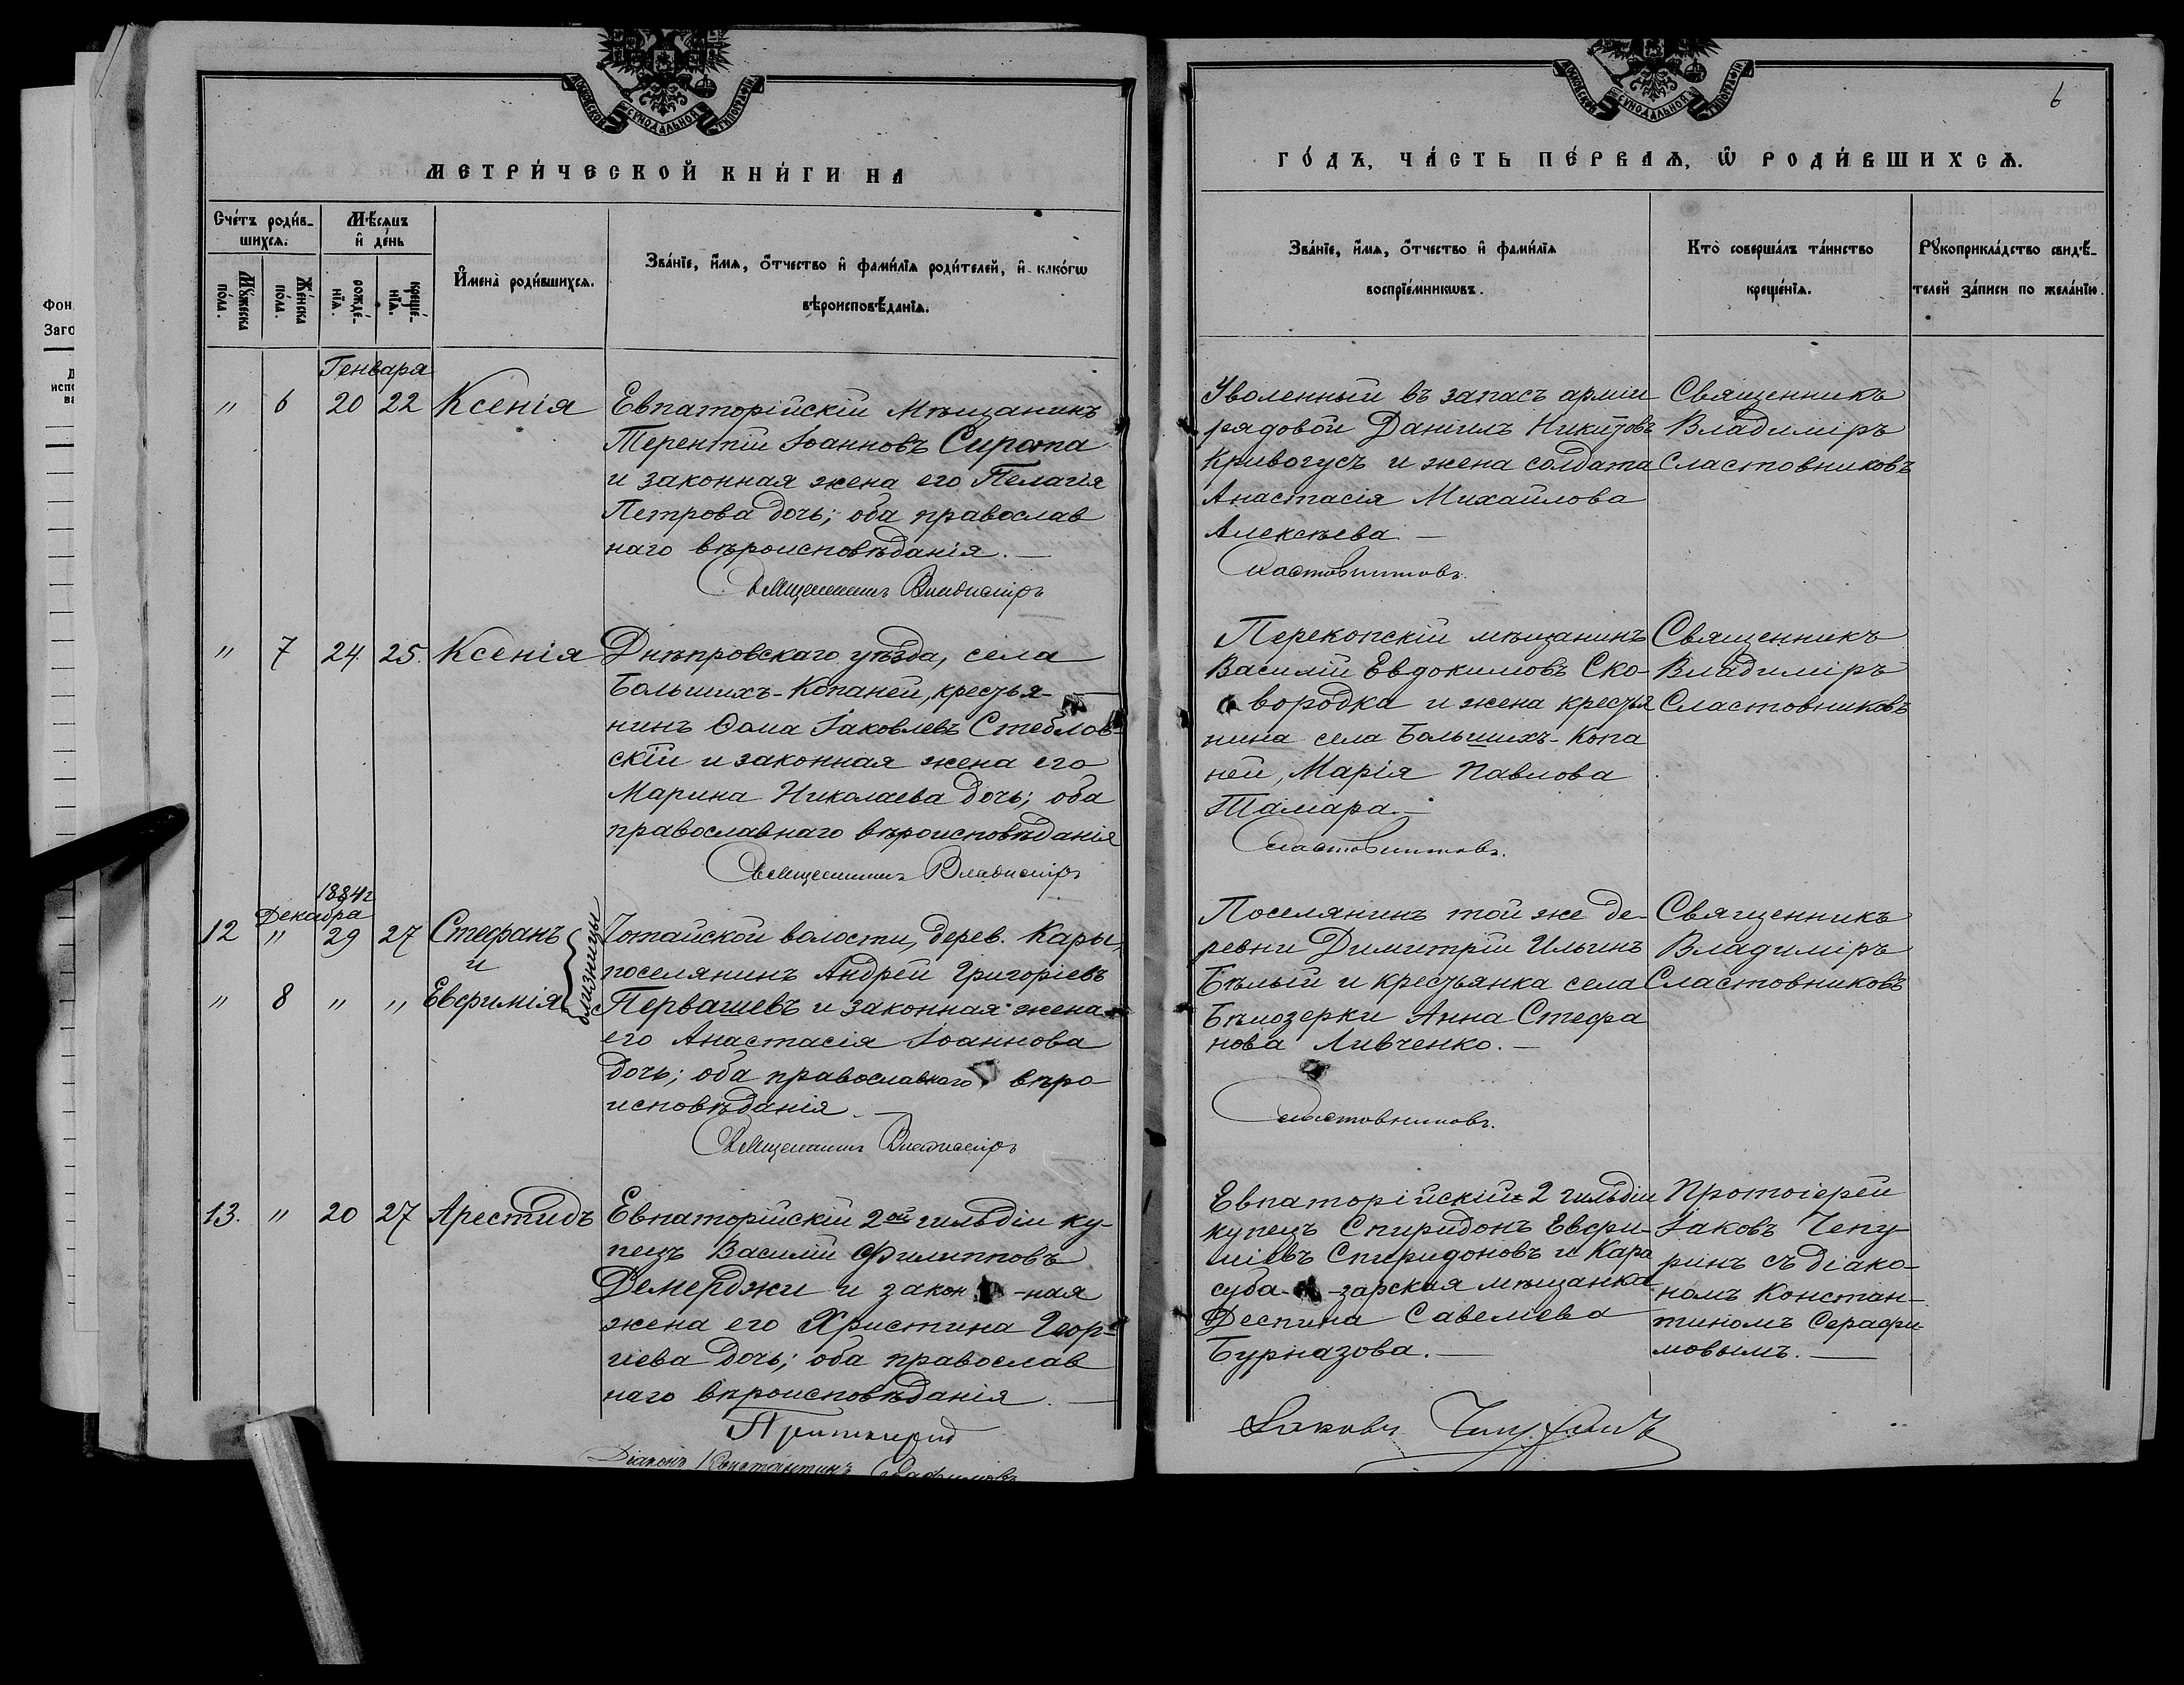 МОСКОВСКОЙ СѴНОДАЛЬНОЙ ТИПОГРАФІИ
МЕТРИ́ЧЕСКОЙ КНИ́ГИ НА
Сче́тъ роди́в-
шихсѧ.
Мѣ́сѧцъ
и҆ де́нь
Мꙋ́жеска по́ла.
Же́нска по́ла.
рожде́-
нїѧ.
креще́-
нїѧ.
И҆мена̀ роди́вшихсѧ.
Зва́нїе, и҆́мѧ, ѻ҆́тчество и҆ фами́лїѧ роди́телей, и҆ како́гѡ
вѣроисповѣ́данїѧ.
Генваря
" 6 20 22 Ксенія
Евпаторійскій Мѣщанинъ
Терентій Іоанновъ Сирота
и законная жена его Пелагія
Петрова дочь; оба православ
наго вѣроисповѣданія. —
Священникъ Владиміръ
" 7 24. 25. Ксенія
Днѣпровскаго уѣзда, села
Большихъ-Копаней, крестья-
нинъ Ѳома Іаковлевъ Стеблов-
скій и законная жена его
Марина Николаева дочь; оба
православнаго вѣроисповѣданія
Священникъ Владиміръ
1884 г
Декабря
12 " 29 27 Стефанъ
и
" 8 " " Евфимія
близницы
волости, дерев. Кары,
поселянинъ Андрей Григоріевъ
Первашевъ и законная жена
его Анастасія Іоаннова
дочь; оба православнаго вѣро
исповѣданія. —
Священникъ Владиміръ
13. " 20 27 Арестидъ
Евпаторійскій 2ой гильдіи ку-
пецъ Василій Филипповъ
Демерджи и закон -ная
жена его Христина Геор-
гіева дочь; оба православ
наго вѣроисповѣданія. —
Протоіерей
Діаконъ Константинъ Серафимовъ
6
МОСКОВСКОЙ СѴНОДАЛЬНОЙ ТИПОГРАФІИ
ГО́ДЪ, ЧА́СТЬ ПЕ́РВАѦ, Ѡ҆ РОДИ́ВШИХСѦ.
Зва́нїе, и҆́мѧ, ѻ҆́тчество и҆ фами́лїѧ
воспрїе́мникѡвъ.
Кто̀ соверша́лъ та́инство
креще́нїѧ.
Рꙋкоприкла́дство свидѣ́-
телей за́писи по жела́нїю.
Уволенный въ запасъ арміи
рядовой Даніилъ Никитовъ
Кривогусъ и жена солдата
Анастасія Михайлова
Алексѣева. —
Сластовниковъ.
Священникъ
Владиміръ
Сластовниковъ
Перекопскій мѣщанинъ
Василій Евдокимовъ Ско-
вородка и жена крестья
нина села Большихъ-Копа
ней, Марія Павлова
Шамара. —
Сластовниковъ.
Священникъ
Владиміръ
Сластовниковъ
Поселянинъ той же де-
ревни Димитрій Ильинъ
Бѣлый и крестьянка села
Бѣлозерки Анна Стефа
нова Ливченко. —
Сластовниковъ.
Священникъ
Владиміръ
Сластовниковъ
Евпаторійскій 2 гильдіи
купецъ Спиридонъ Евфи-
міевъ Спиридоновъ и Кара
суба- -зарская мѣщанка
Деспина Савеліева
Бурназова. —
Протоіерей
Іаковъ Чепу
ринъ съ діако-
номъ Констан-
тиномъ Серафи-
мовымъ. —
Іаковъ Чепуринъ